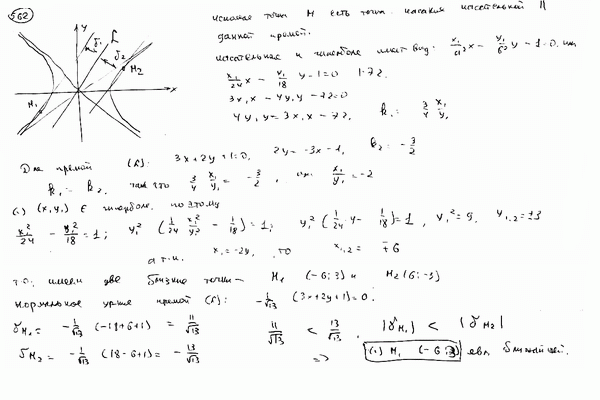 562
искомая точка M есть точка касания касательной ||
данной прямой.
касательная к гиперболе имеет вид: x₁/a² x − y₁/b² y − 1 = 0, или
x₁/24 x − y₁/18 y − 1 = 0 | · 72
3x₁x − 4y₁y − 72 = 0
4y₁y = 3x₁x − 72, k₁ = 3/4 x₁/y₁
Для прямой (L): 3x + 2y + 1 = 0, 2y = −3x − 1, k₂ = −3/2
k₁ = k₂, так что 3/4 x₁/y₁ = −3/2, или x₁/y₁ = −2
(·) (x₁y₁) ∈ гиперболе, поэтому
x₁²/24 − y₁²/18 = 1; y₁² (1/24 x₁²/y₁² − 1/18) = 1; y₁² (1/24 · 4 − 1/18) = 1, y₁² = 9, y₁,₂ = ±3
а т.к. x₁ = −2y₁, то x₁,₂ = ∓6
т.о. имеем две близкие точки − M₁ (−6; 3) и M₂ (6; −3)
нормальное ур-ие прямой (L): −1/√13 (3x + 2y + 1) = 0.
δM₁ = −1/√13 (−18 + 6 + 1) = 11/√13 11/√13 < 13/√13, |δM₁| < |δM₂|
δM₂ = −1/√13 (18 − 6 + 1) = −13/√13 => (·) M₁ (−6; 3) явл. ближайшей.
y
x
L
δ₁
δ₂
M₁
M₂